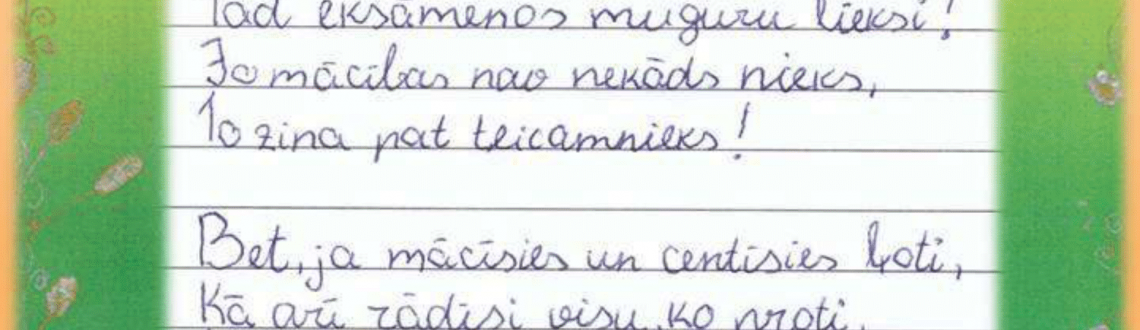 Tad eksāmenos muguru lieksi!
Jo mācības nav nekāds nieks,
To zina pat teicamnieks!
Bet, ja mācīsies un centīsies ļoti,
Kā arī rādīsi visu, ko proti,